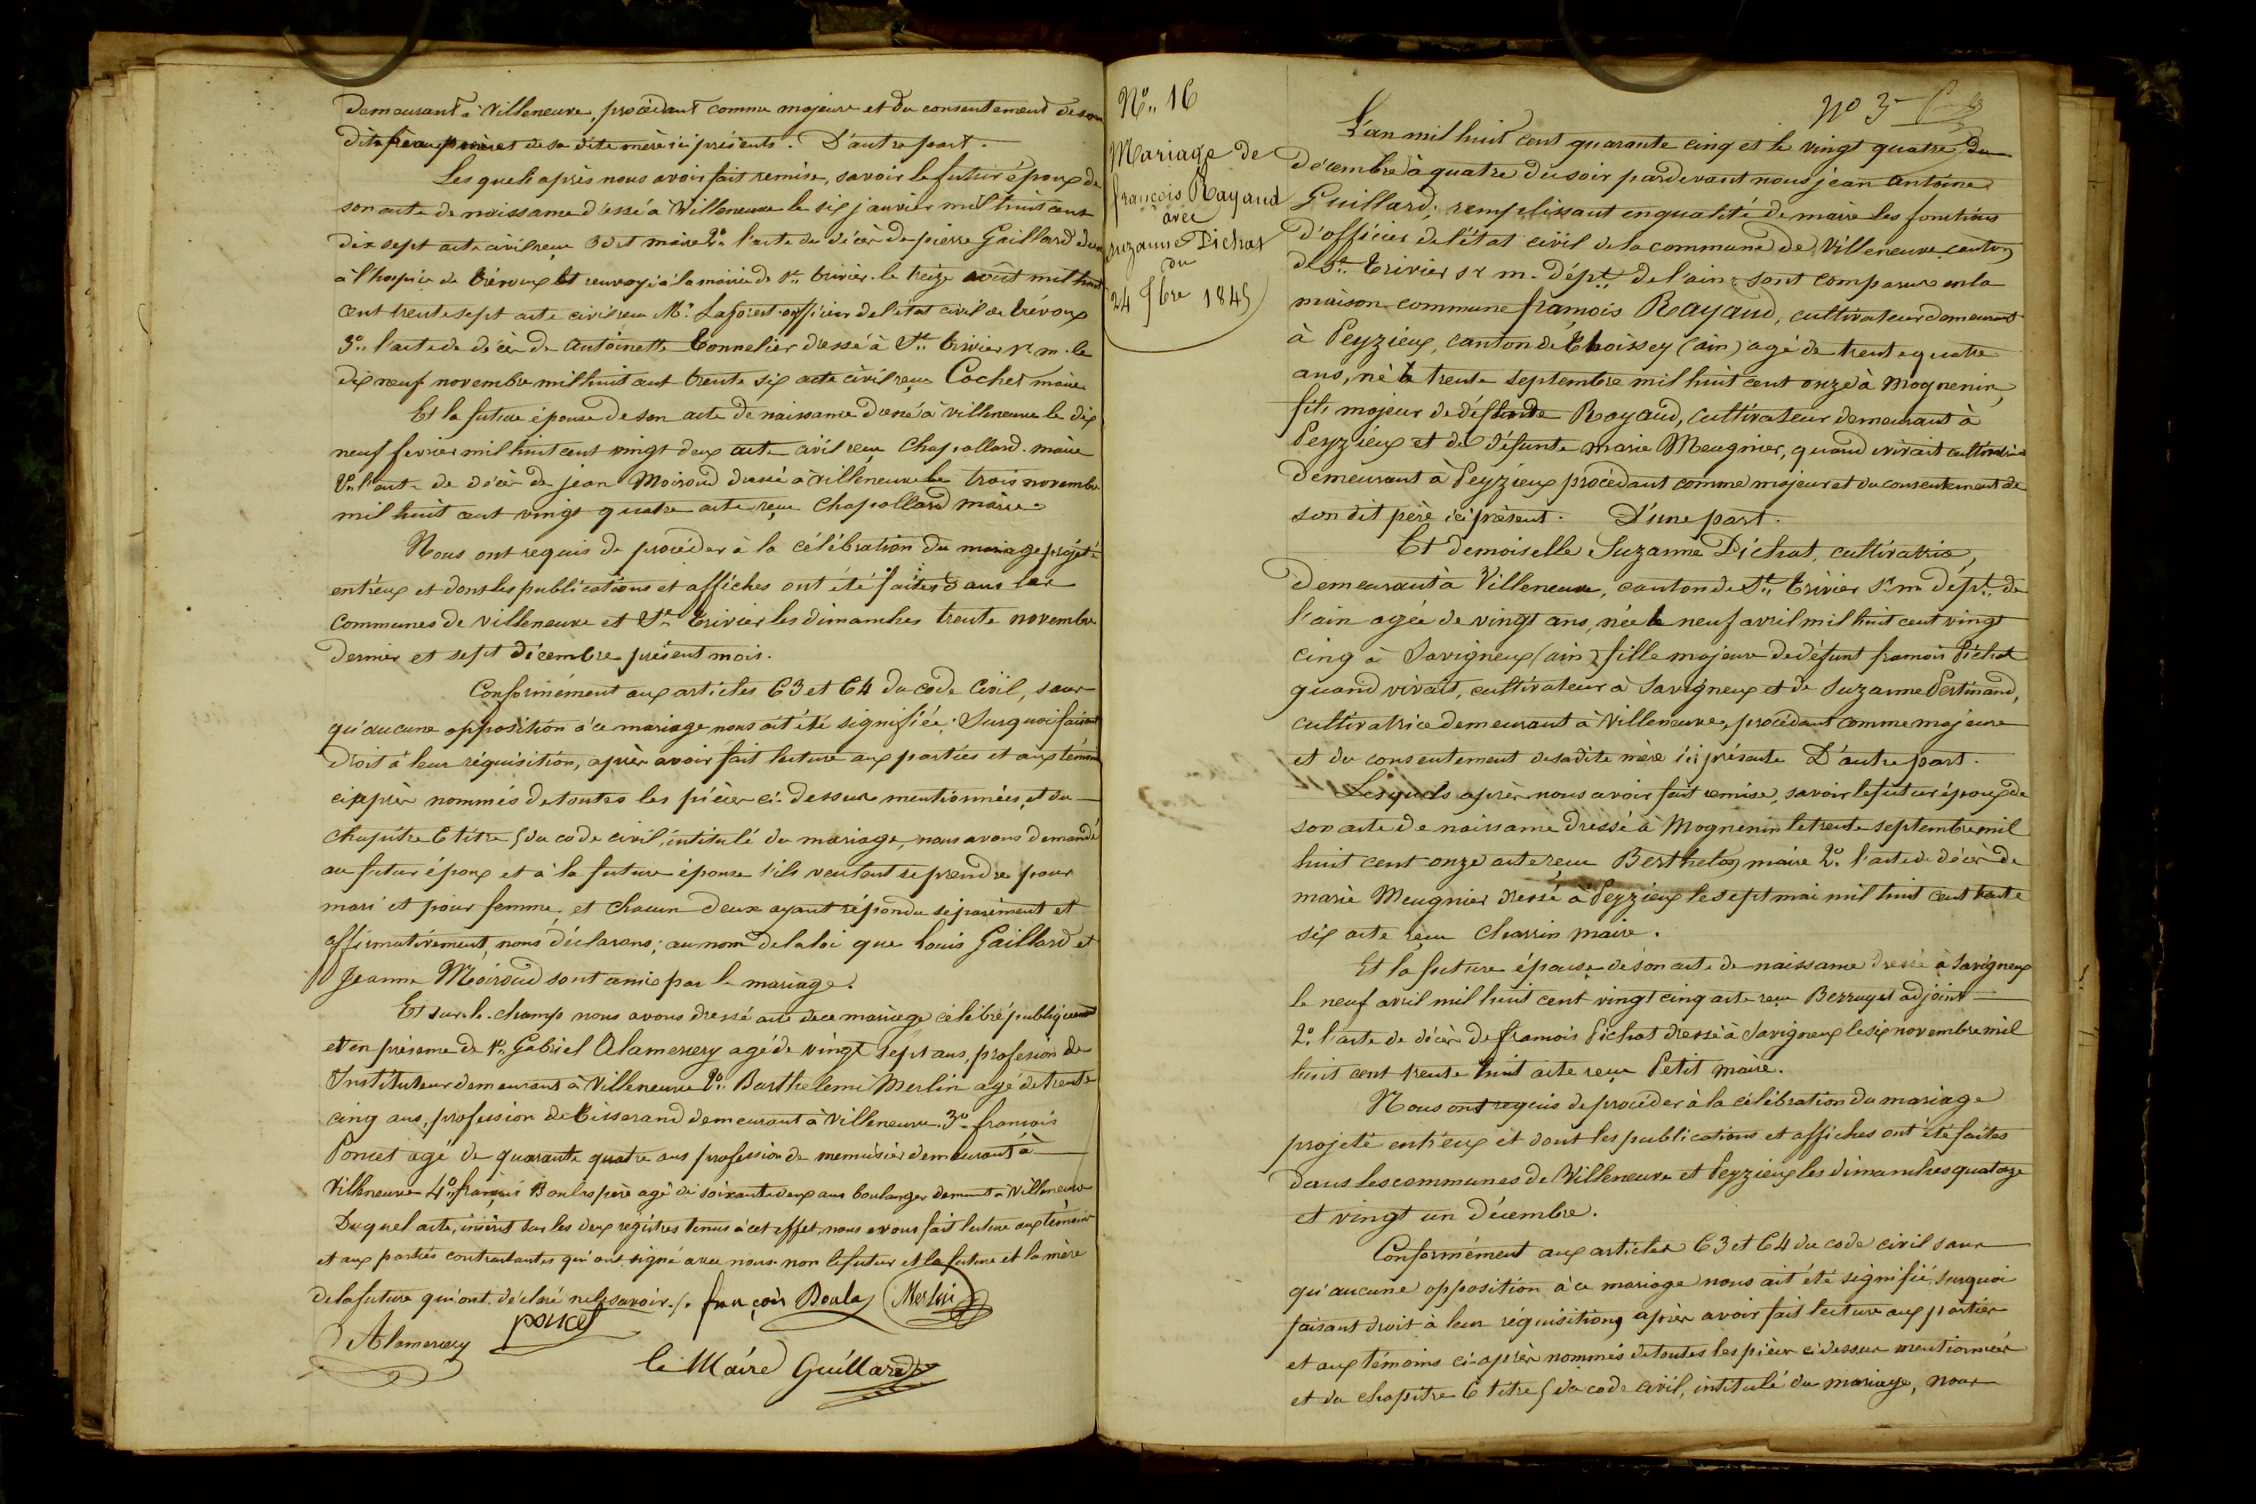 demeurant à Villeneuve, procédant comme majeure et du consentement de son
et de sa dite mère ici présents. D'autre part.
Les quels après nous avoir fait remise, savoir le futur époux de
son acte de naissance dressé à Villeneuve le six janvier mil huit cent
dix sept acte civil reçu maire 2º l'acte de décès de pierre Gaillard
à l'hospice de trévoux et renvoyé à la mairie de St. trivier le treize août mil huit
cent trente sept acte civil reçu Mr. Laforest officier de l'état civil de trévoux
3º l'acte de décès de Antoinette Tonnelier dressé à St. trivier sr. m. le
dix neuf novembre mil huit cent trente six acte civil reçu Cochet maire
Et la future épouse de son acte de naissance dressé à villeneuve le dix
neuf fevrier mil huit cent vingt deux acte civil reçu Chapollard maire
2º l'acte de décès de jean Moiroud dressé à villeneuve le trois novembre
mil huit cent vingt quatre acte reçu Chapollard maire.
Nous ont requis de procéder à la célébration du mariage projeté
entr'eux et dont les publications et affiches ont été faites dans les
communes de villeneuve et St. Trivier les dimanches trente novembre
dernier et sept décembre présent mois.
Conformément aux articles 63 et 64 du code civil, sans
qu'aucune opposition à ce mariage nous ait été signifiée. Sur quoi faisant
droit à leur réquisition, après avoir fait lecture aux parties et aux témoins
ci après nommés de toutes les pièces ci-dessus mentionnées, et du
chapitre 6 titre 5 du code civil, intitulé du mariage, nous avons demandé
au futur époux et à la future épouse s'ils veulent se prendre pour
mari et pour femme, et chacun deux ayant répondu séparément et
affirmativement, nous déclarons, au nom de la loi que Louis Gaillard et
Jeanne Moiroud sont unis par le mariage.
Et sur le champ nous avons dressé acte de ce mariage célébré publiquement
et en présence de 1º Gabriel Alamercery agé de vingt sept ans, profession de
Instituteur demeurant à Villeneuve 2º Barthelemi Merlin agé de trente
cinq ans, profession de Tisserand demeurant à Villeneuve 3º françois
Poncet agé de quarante quatre ans profession de menuisier demeurant à
Villeneuve 4º françois Boulas père agé de soixante deux ans boulanger demeurt. à Villeneuve
Duquel acte, inscrit sur les deux registres tenus à cet effet, nous avons fait lecture aux témoins
et aux parties contractantes qui ont signé avec nous non le futur et la future et la mère
de la future qui ont déclaré ne le savoir. /. françois Boula Merlin
Alamercery poncet
le Maire Guillard
Nº 16
Mariage de
françois Rayaud
avec
suzanne Pichat
du
24 Xbre 1845
Nº 3
L'an mil huit cent quarante cinq et le vingt quatre du
décembre à quatre du soir pardevant nous jean Antoine
Guillard, remplissant en qualité de maire les fonctions
d'officier de l'état civil de la commune de Villeneuve canton
de St. Trivier sr m. dépt. de l'ain, sont comparus en la
maison commune françois Rayaud, cultivateur demeurant
à Peyzieux, canton de Thoissey (ain) agé de trente quatre
ans, né le trente septembre mil huit cent onze à Mogneneins,
fils majeur de Rayaud, cultivateur demeurant à
Peyzieux et de défunte Marie Meugnier, quand vivait cultivatrice
demeurant à Peyzieux procédant comme majeur et du consentement de
son dit père ici présent. D'une part.
Et demoiselle Suzanne Pichat, cultivatrice,
demeurant à Villeneuve, canton de St. Trivier sr. m. dépt. de
l'ain agée de vingt ans, née le neuf avril mil huit cent vingt
cinq à Savigneux (ain) fille majeure de défunt françois Pichat
quand vivait, cultivateur à Savigneux et de Suzanne Pertinand,
cultivatrice demeurant à Villeneuve, procédant comme majeure
et du consentement de sa dite mère ici présente D'autre part.
Lesquels après nous avoir fait remise, savoir le futur époux de
son acte de naissance dressé à Mognenin le trente septembre mil
huit cent onze acte reçu Berthelon maire 2º l'acte de décès de
marie Meugnier dressé à Peyzieux le sept mai mil huit cent trente
six acte reçu Charrin maire.
Et la future épouse de son acte de naissance dressé à Savigneux
le neuf avril mil huit cent vingt cinq acte reçu Berruyet adjoint
2º l'acte de décès de françois Pichat dressé à Savigneux le six novembre mil
huit cent trente huit acte reçu Petit maire.
Nous ont requis de procéder à la célébration du mariage
projeté entr'eux et dont les publications et affiches ont été faites
dans les communes de Villeneuve et Peyzieux les dimanches quatorze
et vingt un décembre.
Conformément aux articles 63 et 64 du code civil sans
qu'aucune opposition à ce mariage nous ait été signifié, sur quoi
faisant droit à leur réquisition, après avoir fait lecture aux parties
et aux témoins ci-après nommés de toutes les pièces ci dessus mentionnées
et du chapitre 6 titre 5 du code civil, intitulé du mariage, nous